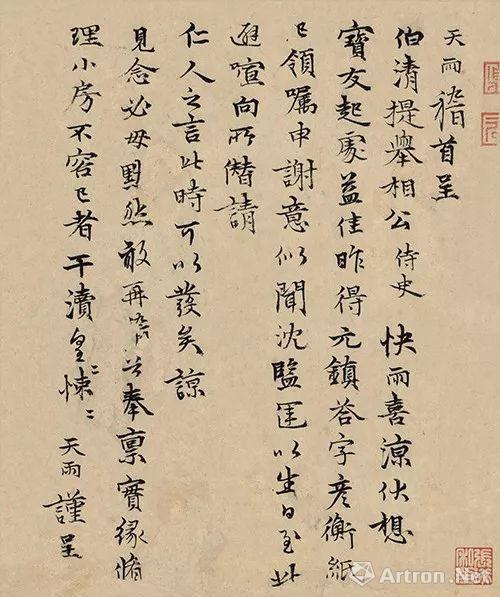 天雨稽首呈
伯清提舉相公侍史 快雨喜涼伏想
寶友起處益佳昨得元鎮荅字彦衡紙
已領囑申謝意似聞沈監運以生日至此
避喧向所僭請
仁人之言此時可以發矣諒
見念必毋默然敢再奉稟實緣脩
理小房不容已者干瀆皇〻悚〻 天雨謹呈
Artron.Net